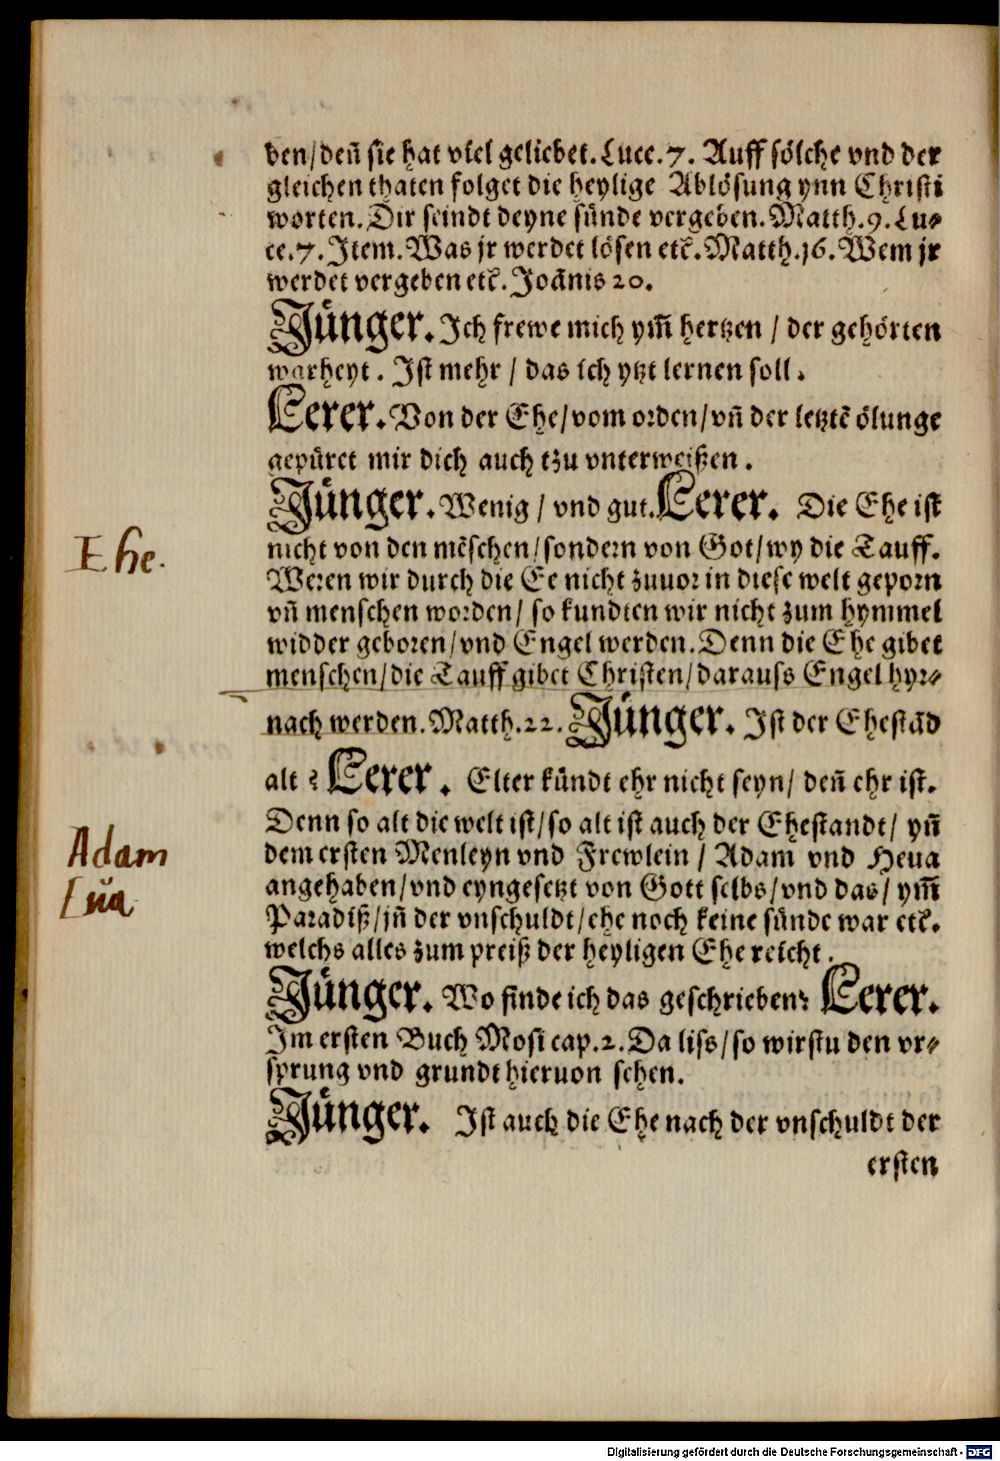 ben/ deñ sie hat viel geliebet. Luce. 7. Auff sölche vnd der
gleichen thaten folget die heylige Ablösung ynn Christi
worten. Dir seindt deyne sünde vergeben. Matth. 9. Lu⸗
ce. 7. Item. Was jr werdet lösen etc̃. Matth. 16. Wem jr
werdet vergeben etc̃. Joānis 20.
Jünger. Ich frewe mich ym̃ hertzen / der gehörten
warheyt. Ist mehr / das ich ytzt lernen soll.
Lerer. Von der Ehe/ vom orden/ vñ der letztē ölunge
gepüret mir dich auch tzu vnterweißen.
Jünger. Wenig / vnd gut. Lerer. Die Ehe ist
Ehe.
nicht von den mēschen/ sondern von Got/ wy die Tauff.
Weren wir durch die Ee nicht zuuor in diese welt geporn
vñ menschen worden/ so kundten wir nicht zum hymmel
widder geboren/ vnd Engel werden. Denn die Ehe gibet
menschen/ die Tauff gibet Christen/ darauss Engel hyr⸗
nach werden. Matth. 22. Jünger. Ist der Ehestād
alt? Lerer. Elter kündt ehr nicht seyn/ deñ ehr ist.
Denn so alt die welt ist/ so alt ist auch der Ehestandt/ yñ
Adam
dem ersten Menleyn vnd Frewlein / Adam vnd Heua
Eŭa
angehaben/ vnd eyngesetzt von Gott selbs/ vnd das/ ym̃
Paradiß/ jñ der vnschuldt/ ehe noch keine sünde war etc̃.
welchs alles zum preiß der heyligen Ehe reicht.
Jünger. Wo finde ich das geschrieben? Lerer.
Im ersten Buch Mosi cap. 2. Da liss/ so wirstu den vr⸗
sprung vnd grundt hieruon sehen.
Jünger. Ist auch die Ehe nach der vnschuldt der
ersten
Digitalisierung gefördert durch die Deutsche Forschungsgemeinschaft - DFG